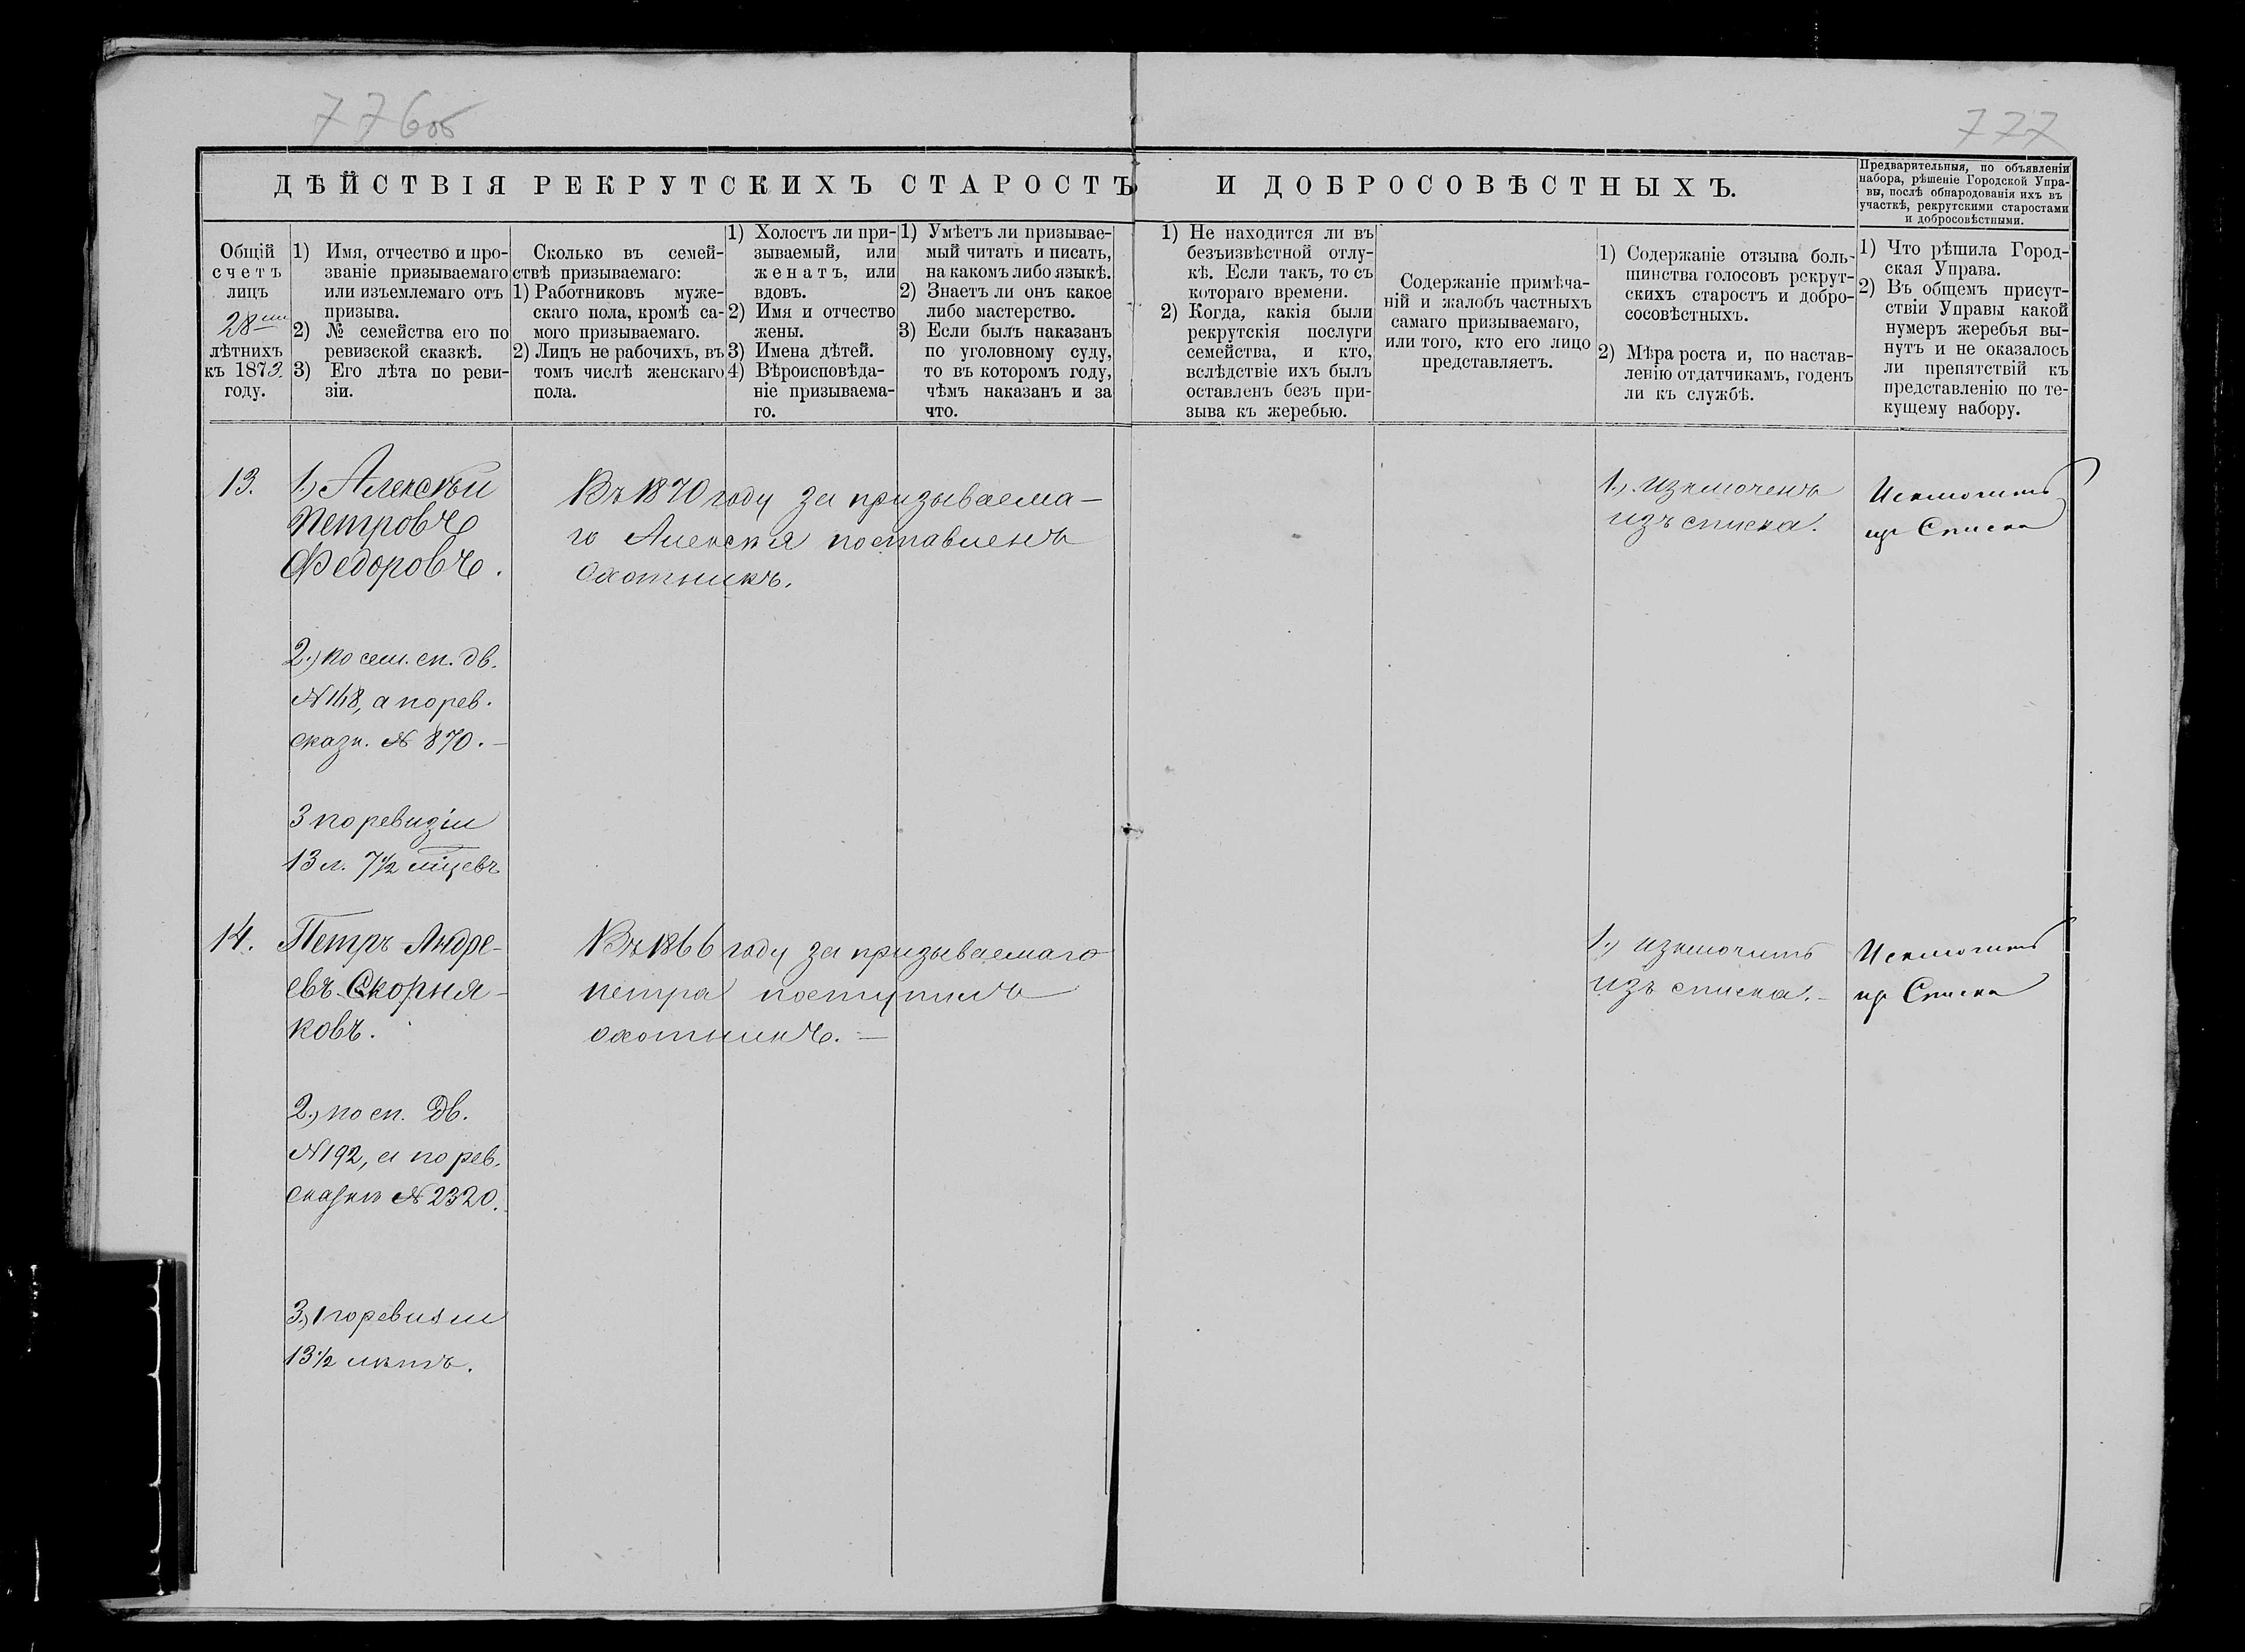 776об
777
ДѢЙСТВІЯ РЕКРУТСКИХЪ СТАРОСТЪ И ДОБРОСОВѢСТНЫХЪ.
Предварительныя, по объявленіи
набора, рѣшеніе Городской Упра-
вы, послѣ обнародованія ихъ въ
участкѣ, рекрутскими старостами
и добросовѣстными.
Общій
счетъ
лицъ
28ми
лѣтнихъ
къ 1873.
году.
1) Имя, отчество и про-
званіе призываемаго
или изъемлемаго отъ
призыва.
2) № семейства его по
ревизской сказкѣ.
3) Его лѣта по реви-
зіи.
Сколько въ семей-
ствѣ призываемаго:
1) Работниковъ муже-
скаго пола, кромѣ са-
мого призываемаго.
2) Лицъ не рабочихъ, въ
томъ числѣ женскаго
пола.
1) Холостъ ли при-
зываемый, или
женатъ, или
вдовъ.
2) Имя и отчество
жены.
3) Имена дѣтей.
4) Вѣроисповѣда-
ніе призываема-
го.
1) Умѣетъ ли призывае-
мый читать и писать,
на какомъ либо языкѣ.
2) Знаетъ ли онъ какое
либо мастерство.
3) Если былъ наказанъ
по уголовному суду,
то въ которомъ году,
чѣмъ наказанъ и за
что.
1) Не находится ли въ
безъизвѣстной отлу-
кѣ. Если такъ, то съ
котораго времени.
2) Когда, какія были
рекрутскія послуги
семейства, и кто,
вслѣдствіе ихъ былъ
оставленъ безъ при-
зыва къ жеребью.
Содержаніе примѣча-
ній и жалобъ частныхъ
самаго призываемаго,
или того, кто его лицо
представляетъ.
1) Содержаніе отзыва боль-
шинства голосовъ рекрут-
скихъ старостъ и добро-
сосовѣстныхъ.
2) Мѣра роста и, по настав-
ленію отдатчикамъ, годенъ
ли къ службѣ.
1) Что рѣшила Город-
ская Управа.
2) Въ общемъ присут-
ствіи Управы какой
нумеръ жеребья вы-
нутъ и не оказалось
ли препятствій къ
представленію по те-
кущему набору.
13.
1.) Алексѣй
Петровъ
Федоровъ.
2.) по сем. сп. дв.
№ 148, а по рев.
сказк. № 870. –
3 по ревизіи
13 л. 7½ мѣсцевъ
Въ 1870 году за призываема-
го Алексѣя поставленъ
охотникъ.
1.) Изключенъ
изъ списка.
Исключить
изъ Списка
14.
Петръ Андре-
евъ Скорня-
ковъ.
2.) по сп. Дв.
№ 192, а по рев.
сказкѣ № 2320.
3.) по ревизіи
13½ лѣтъ.
Въ 1866 году за призываемаго
Петра поступилъ
охотникъ. –
1.) изключить
изъ списка. –
Исключить
изъ Списка